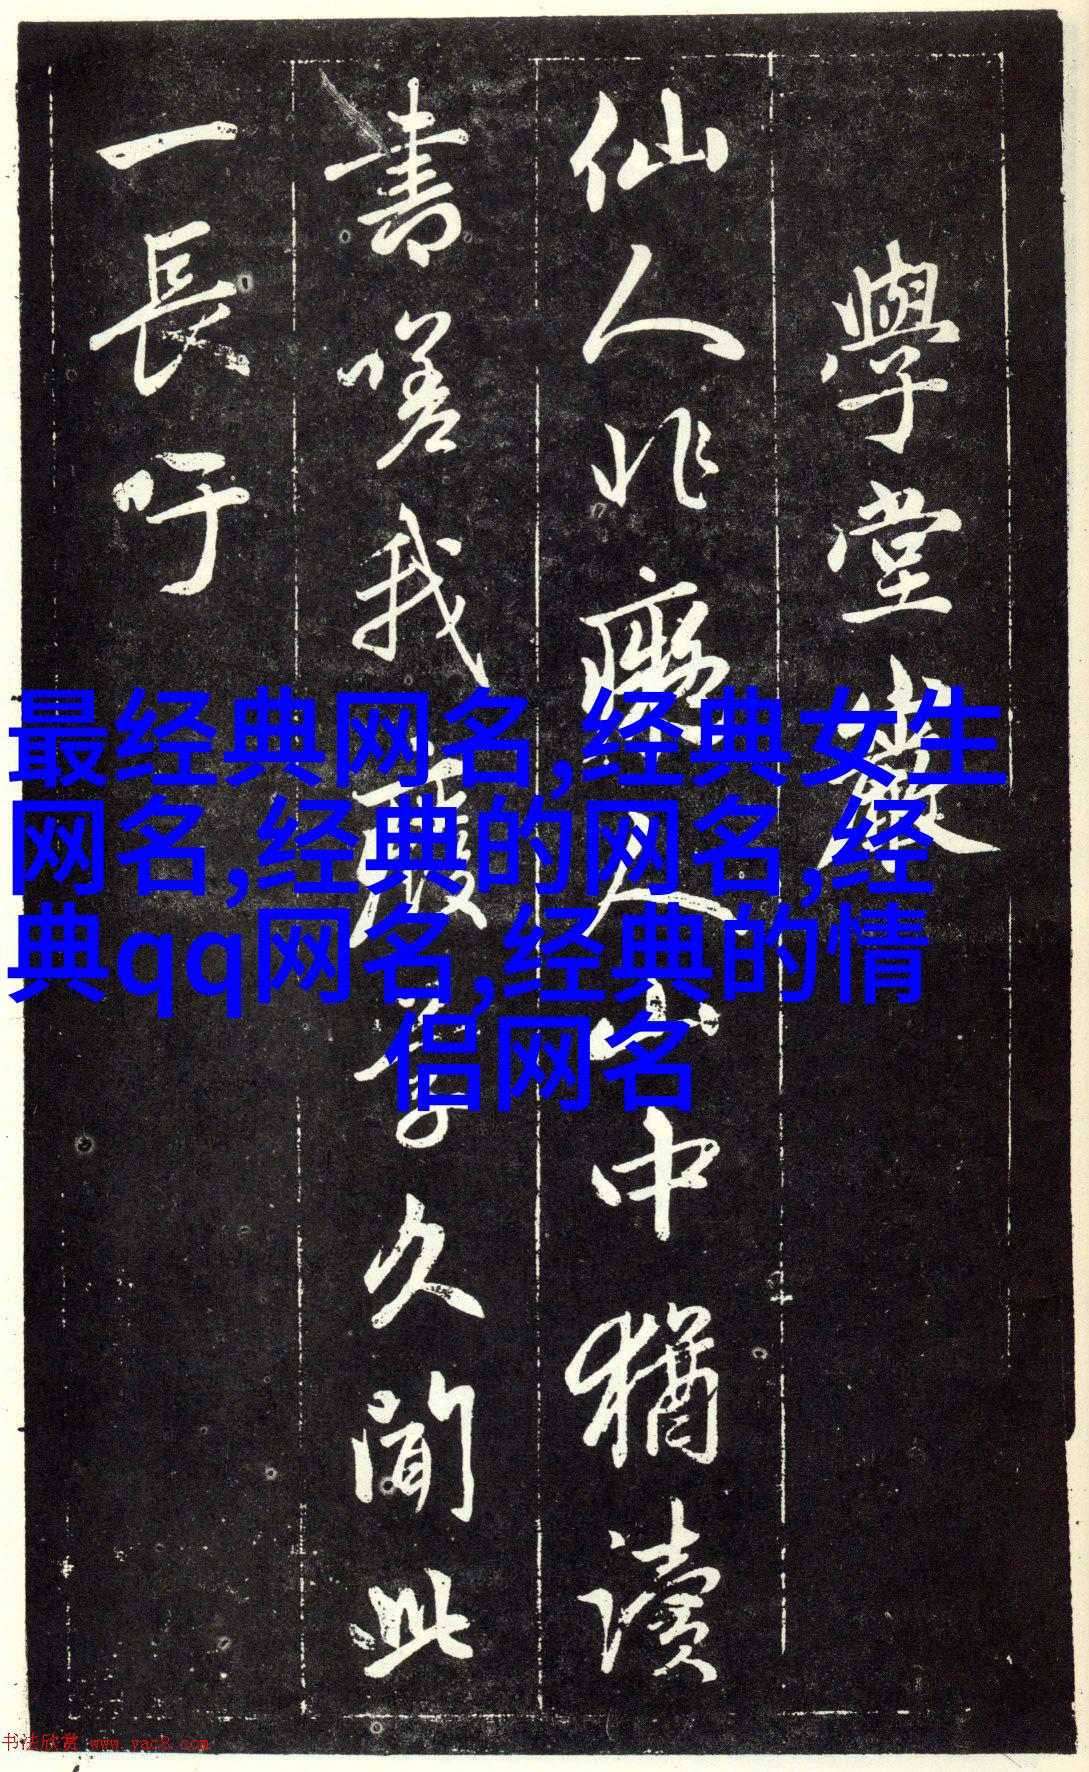 學堂巖
仙人非癯人山中猶讀
書嗟我廢學久聞此
一長吁
最经典网名,经典女生
网名,经典的网名,经
典qq网名,经典的情
侣网名
书法欣赏 www.yac8.com